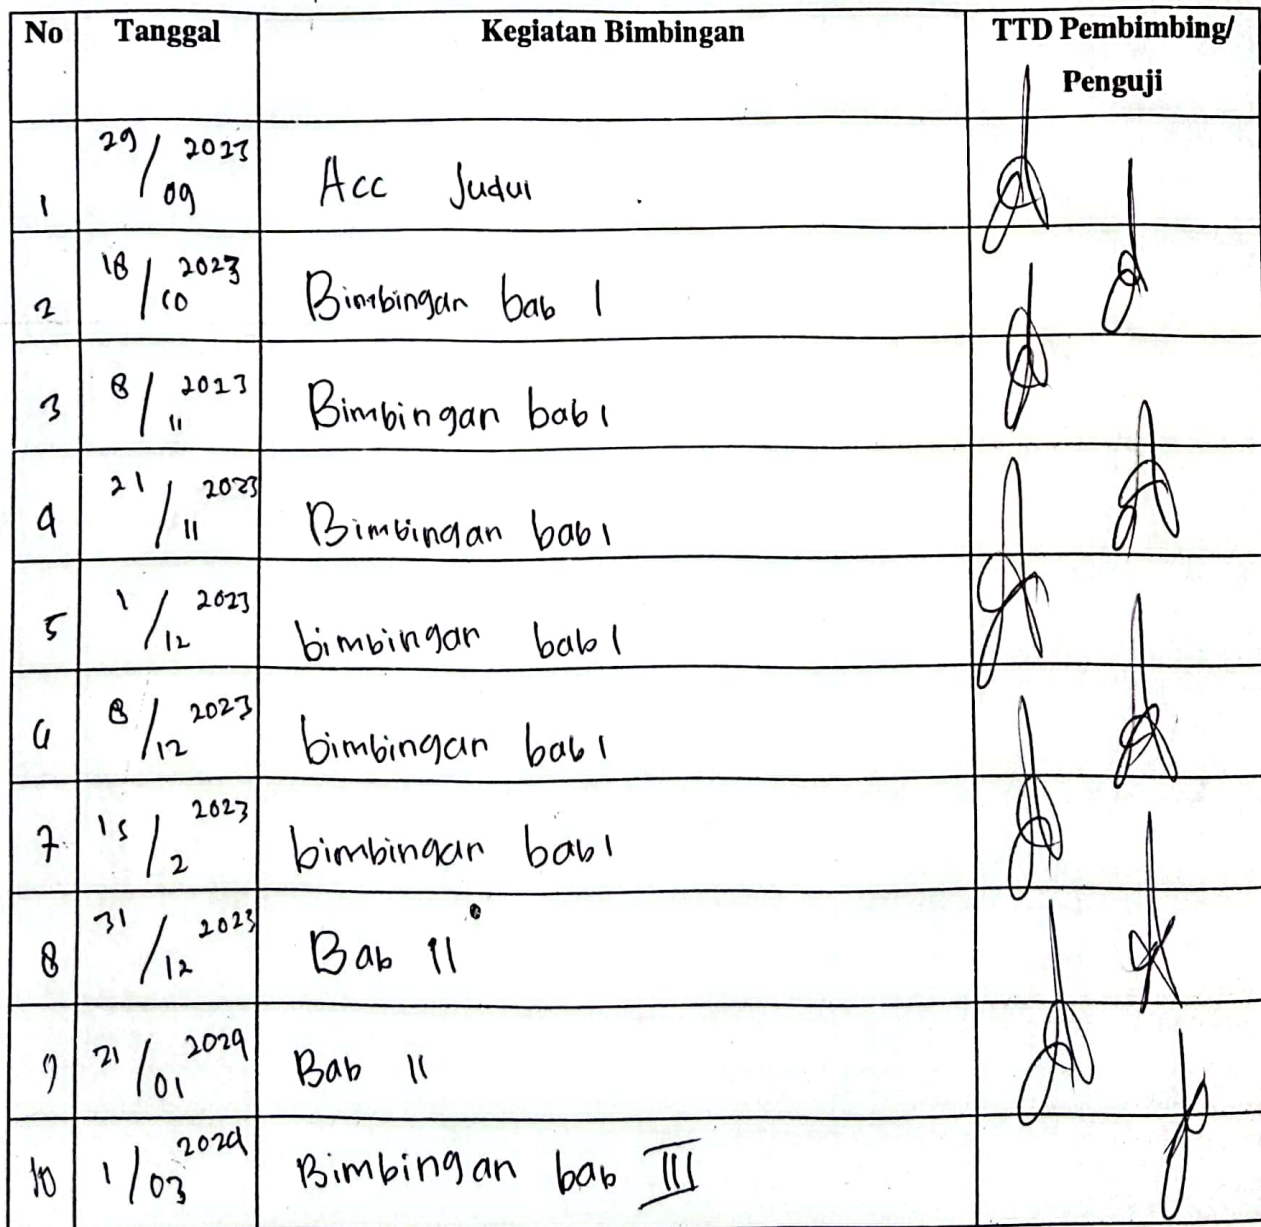 No Tanggal Kegiatan Bimbingan TTD Pembimbing/
Penguji
29 / 2023
1 09 Acc Judul
18 / 2023
2 10 Bimbingan bab 1
3 8 / 2023
11 Bimbingan bab 1
4 21 / 2023
11 Bimbingan bab 1
5 1 / 2023
12 bimbingan bab 1
6 8 / 2023
12 bimbingan bab 1
7 15 / 2023
2 bimbingan bab 1
31 / 2023
8 12 Bab II
9 21 / 2024
01 Bab II
2024
10 1 / 03 Bimbingan bab III